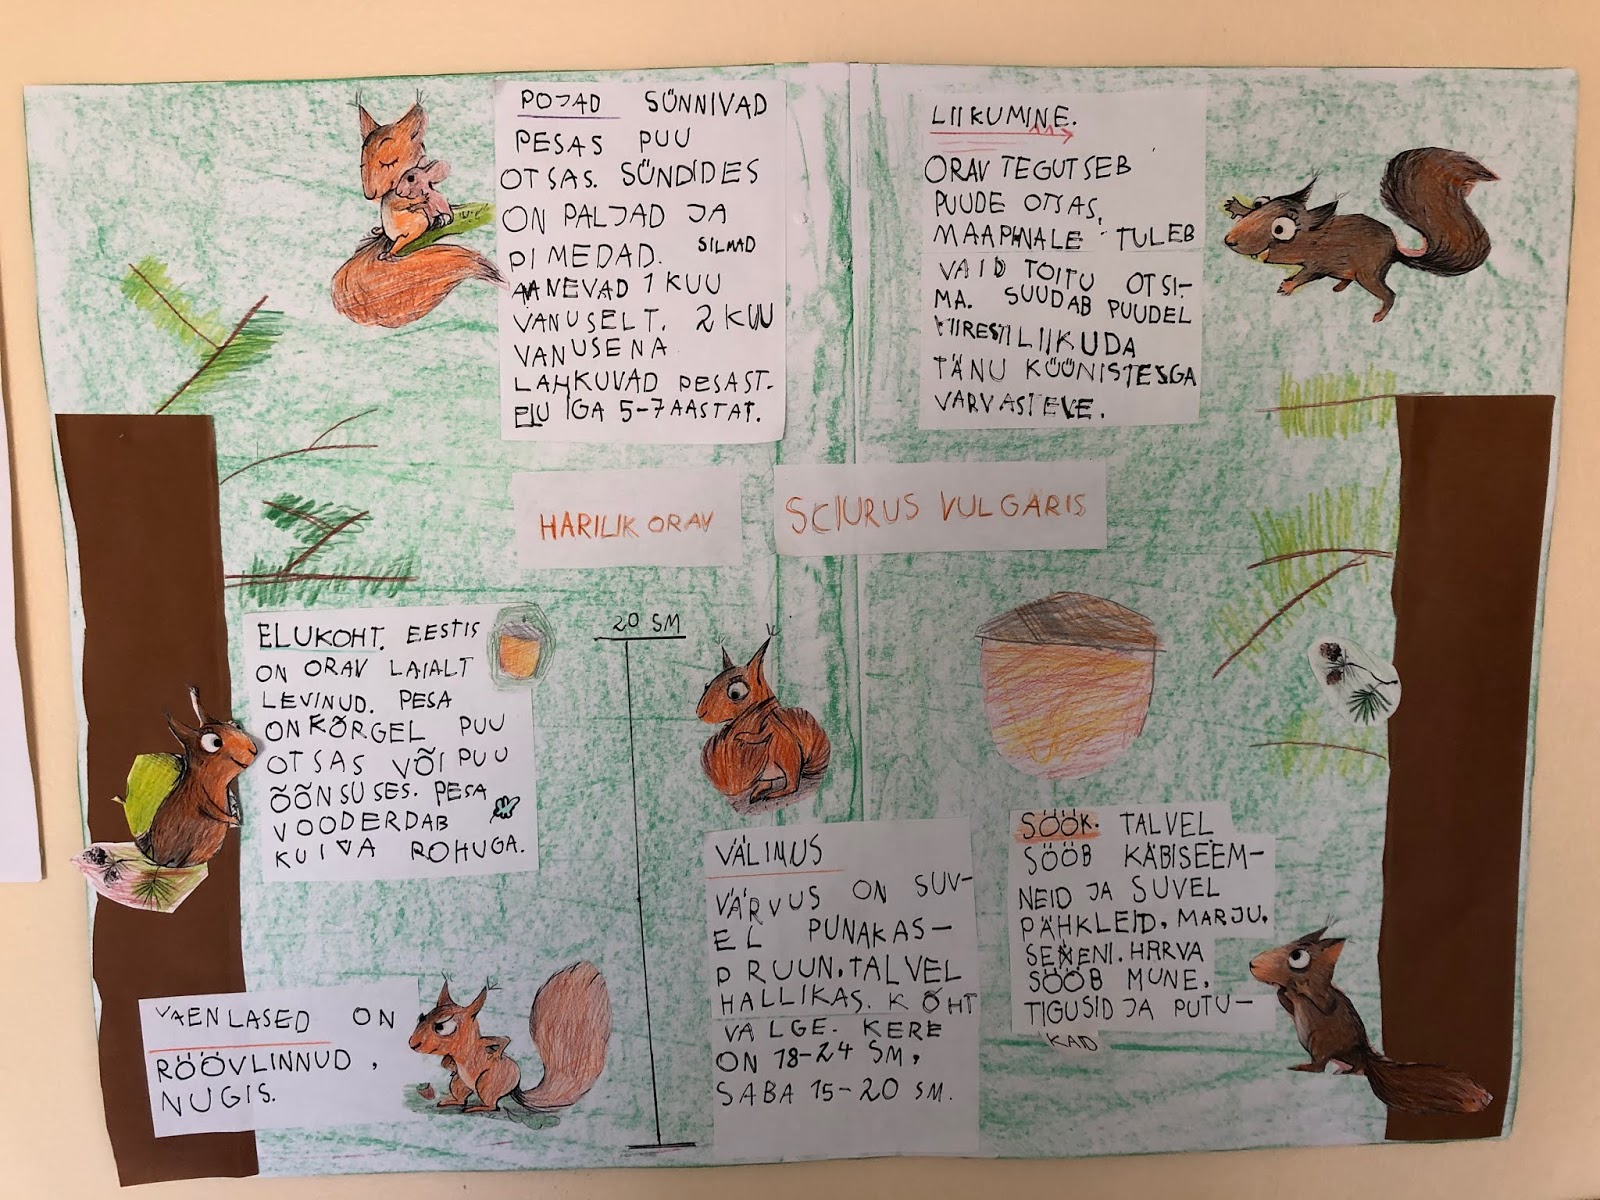 POJAD SÜNNIVAD
PESAS PUU
OTSAS. SÜNDIDES
ON PALJAD JA
PIMEDAD. SILMAD
AVANEVAD 1 KUU
VANUSELT. 2 KUU
VANUSENA
LAHKUVAD PESAST.
ELU IGA 5-7 AASTAT.
LIIKUMINE.
ORAV TEGUTSEB
PUUDE OTSAS,
MAAPINALE TULEB
VAID TOITU OTSI-
MA. SUUDAB PUUDEL
KIIRESTI LIIKUDA
TÄNU KÜÜNISTESGA
VARVASTELE.
HARILIK ORAV
SCIURUS VULGARIS
ELUKOHT. EESTIS
ON ORAV LAIALT
LEVINUD. PESA
ON KÕRGEL PUU
OTSAS VÕI PUU
ÕÕNSUSES. PESA
VOODERDAB
KUIVA ROHUGA.
20 SM
VÄLIMUS
VÄRVUS ON SUV-
EL PUNAKAS-
PRUUN. TALVEL
HALLIKAS. KÕHT
VALGE. KERE
ON 18-24 SM,
SABA 15-20 SM.
SÖÖK. TALVEL
SÖÖB KÄBISEEM-
NEID JA SUVEL
PÄHKLEID, MARJU,
SEENI. HARVA
SÖÖB MUNE,
TIGUSID JA PUTU-
KAID
VAENLASED ON
RÖÖVLINNUD,
NUGIS.